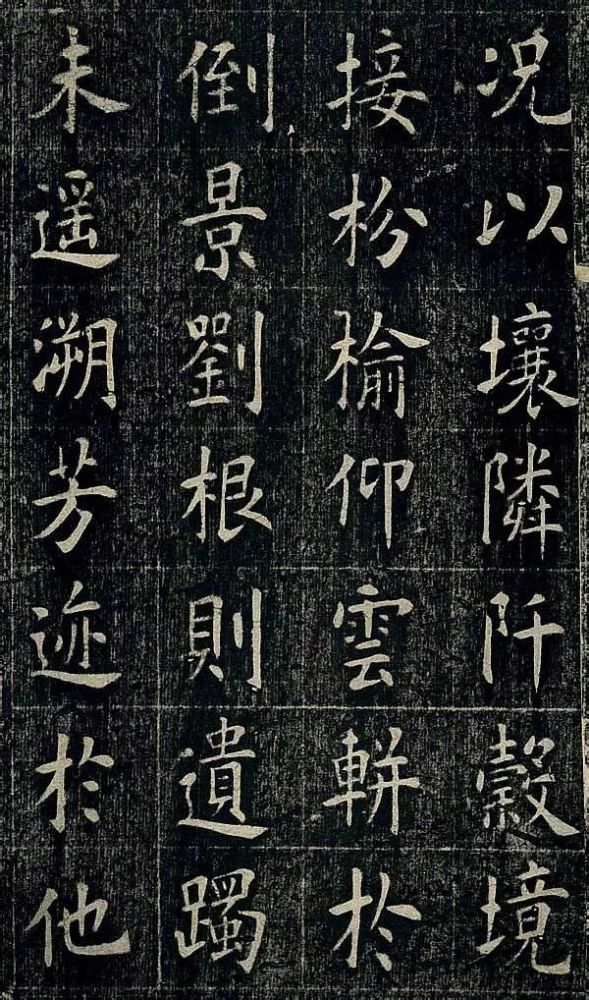 况以壤隣阡轂境
接枌榆仰雲軿於
倒景劉根則遺躅
未遥溯芳迹於他